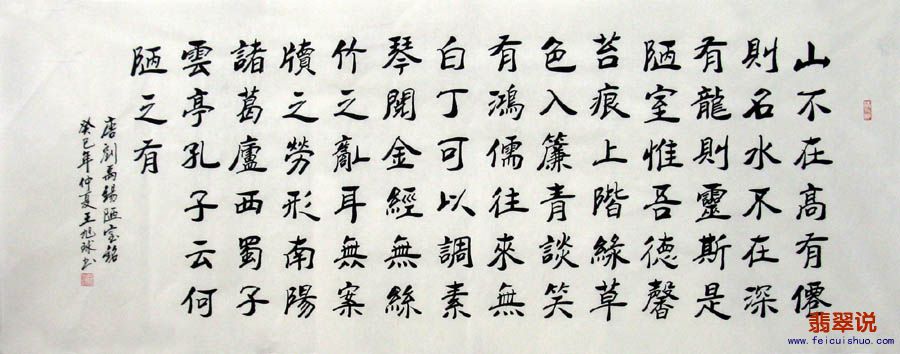 山不在高有僊
則名水不在深
有龍則靈斯是
陋室惟吾德馨
苔痕上階緣草
色入簾青談笑
有鴻儒往來無
白丁可以調素
琴閱金經無絲
竹之亂耳無案
牘之勞形南陽
諸葛廬西蜀子
雲亭孔子云何
陋之有
唐劉禹錫陋室銘
癸巳年仲夏王旭球书
翡翠说
www.feicuishuo.com